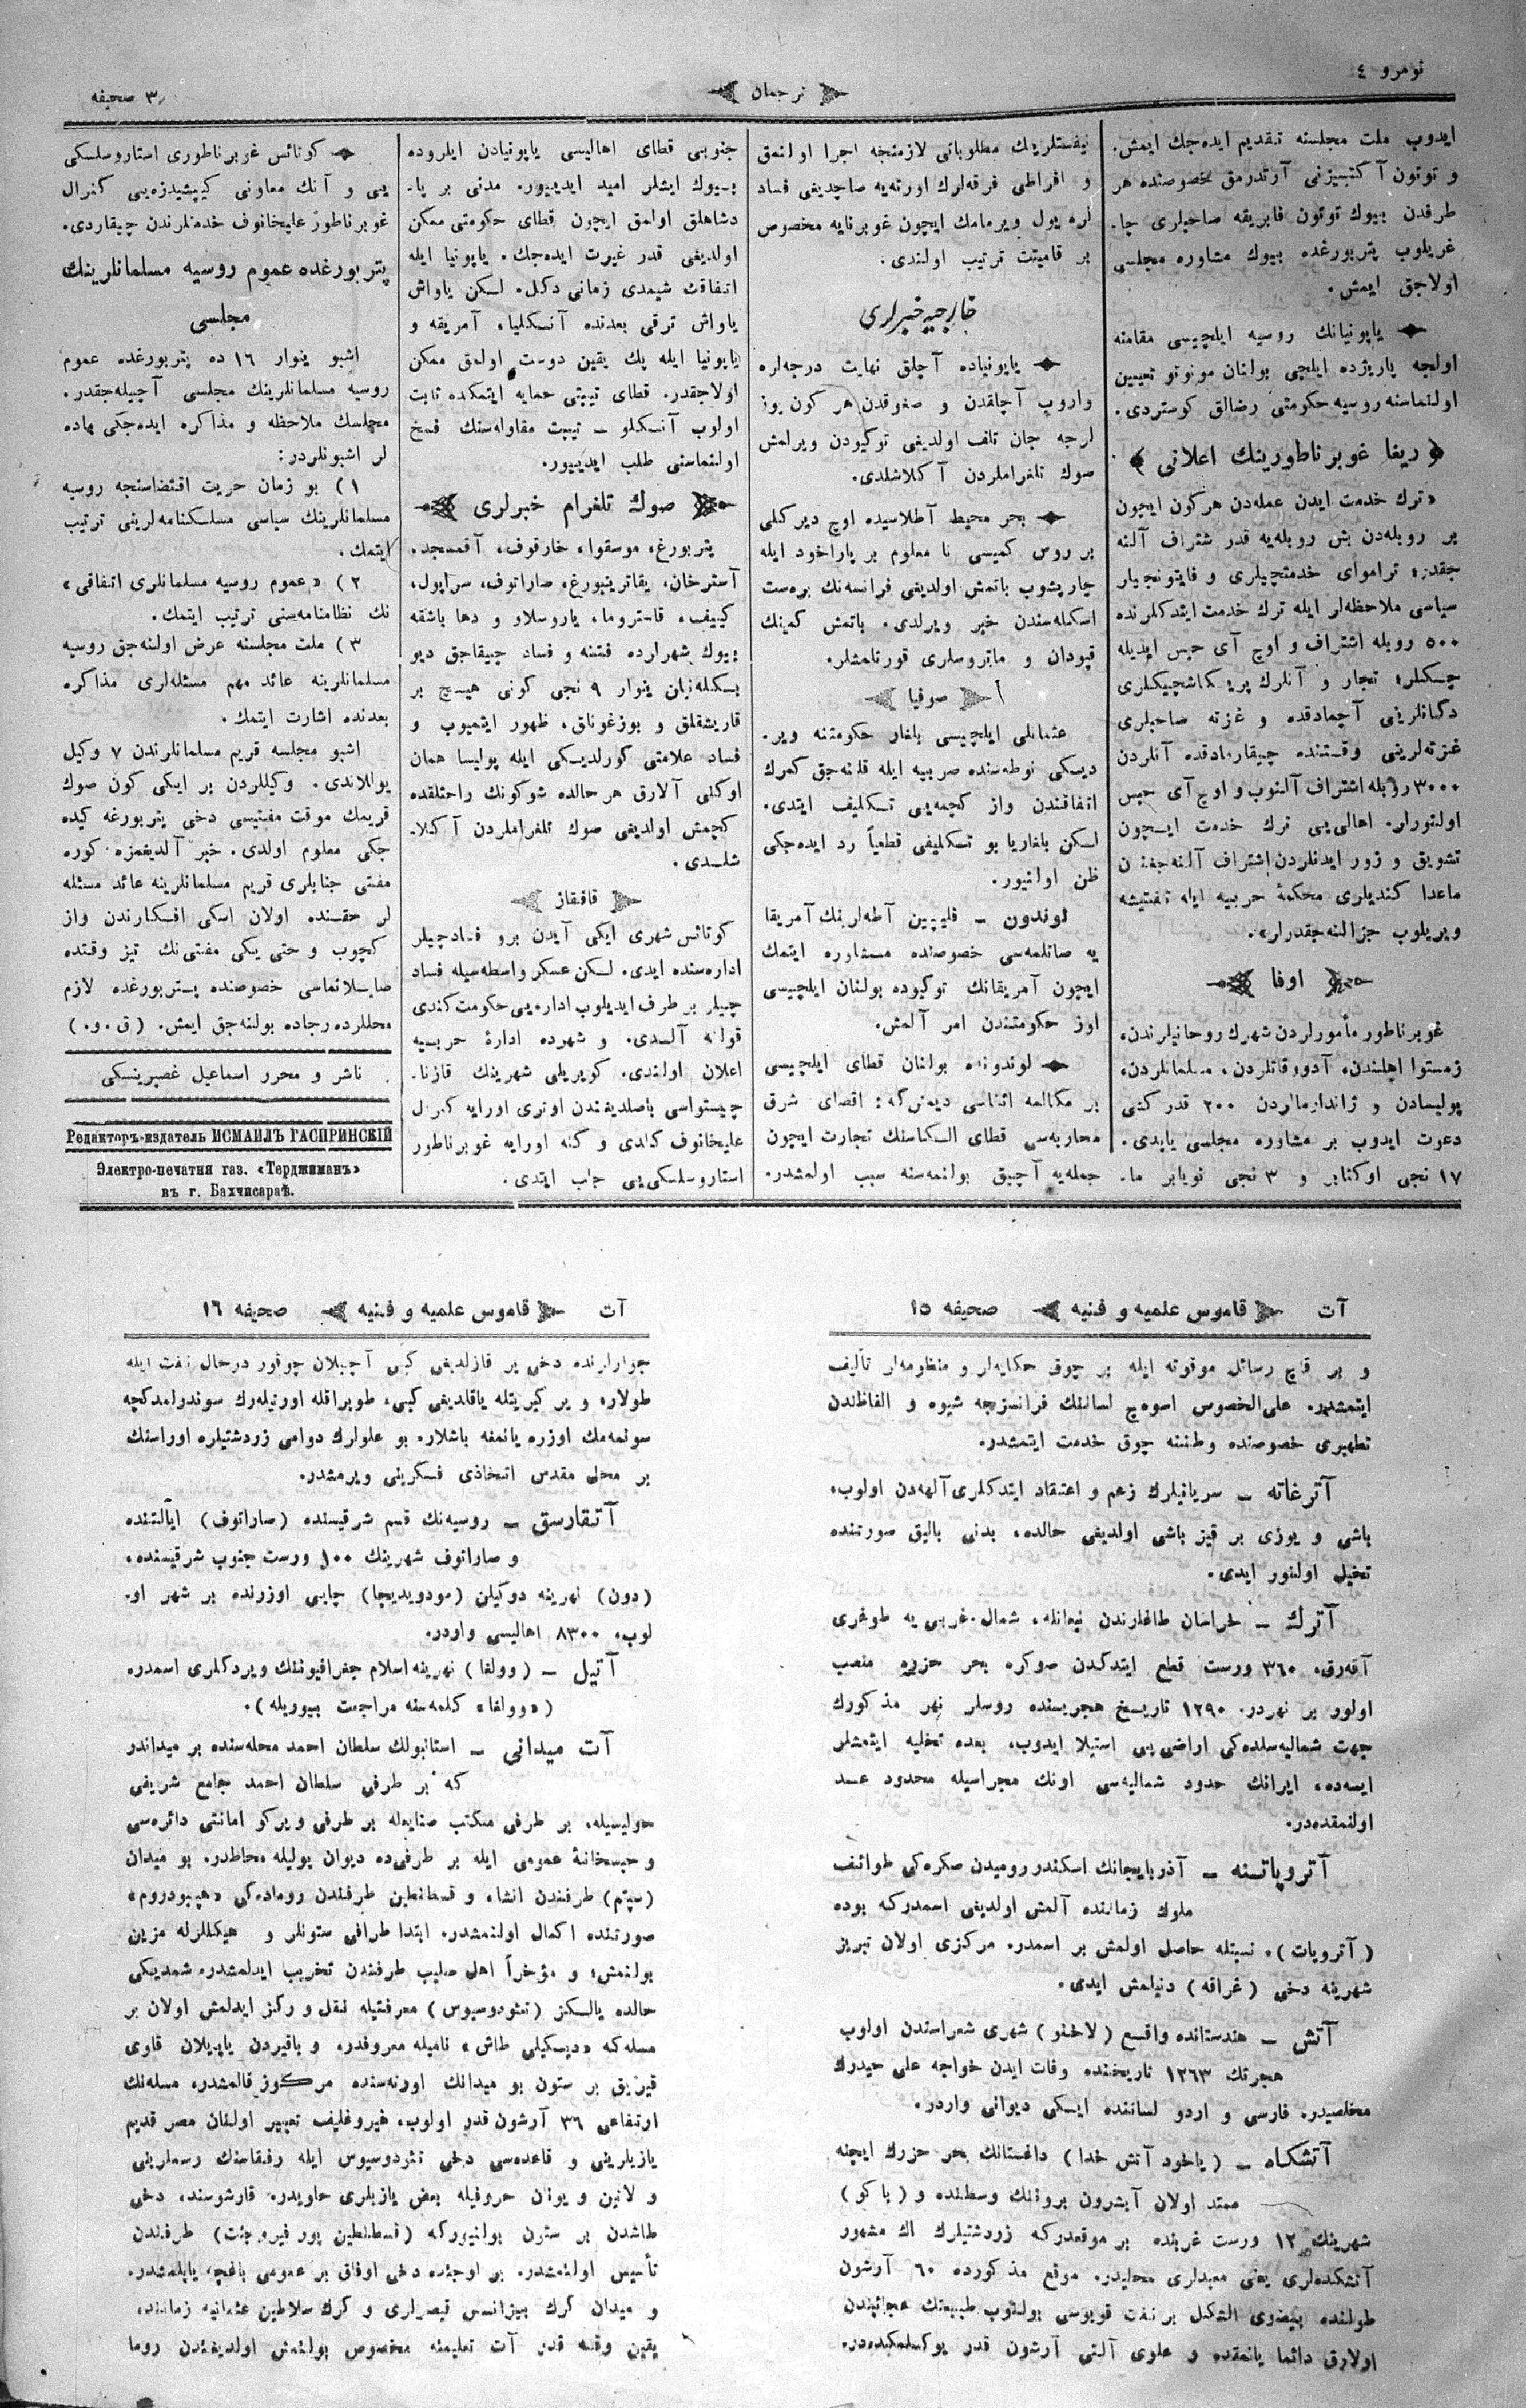 نومرو ٤
ترجمان
٣ صحیفه
ایدوب ملت مجلسنه تقدیم ایده‌جك ایمش.
و توتون آكتسیزنی آرتدرمق خصوصنده هر
طرفدن بیوك توتون فابریقه صاحبلری چا-
غریلوب پتربورغده بیوك مشاوره مجلسی
اولاجق ایمش.
یاپونیانك روسیه ایلچیسی مقامنه
اولجه پاریژده ایلچی بولنان مونوتو تعیین
اولنماسنه روسیه حكومتی رضالق كوستردی.
﴿ ریغا غوبرناطورینك اعلانی ﴾
«ترك خدمت ایدن عمله‌دن هركون ایچون
بر روبله‌دن بش روبله‌یه قدر شتراف آلنه
جقدر؛ تراموای خدمتچیلری و فایتونجیلر
سیاسی ملاحظه‌لر ایله ترك خدمت ایتدكلرنده
٥٠٠ روبله اشتراف و اوچ آی حبس ایدیله
چكلر؛ تجار و آنلرك پریكاشچیكلری
دكانلرینی آچمادقده و غزته صاحبلری
غزته‌لرینی وقتنده چیقارمادقده آنلردن
٣٠٠٠ روبله اشتراف آلنوب و اوچ آی حبس
اولنورلر. اهالی‌یی ترك خدمت ایچون
تشویق و زور ایدنلردن اشتراف آلنه‌جغندن
ماعدا كندیلری محكمهٔ حربیه ایله تفتیشه
ویریلوب جزالنه‌جقدرلر».
اوفا
غوبرناطور مأمورلردن شهرك روحانیلرندن،
زمستوا اهلندن، آدووقاتلردن، مسلمانلردن،
پولیسادن و ژاندارمالردن ٢٠٠ قدر كشی
دعوت ایدوب بر مشاوره مجلسی یاپدی.
١٧ نجی اوكتابر و ٣ نجی نویابر ما-
نیفستلرینك مطلوباتی لازمنجه اجرا اولنمق
و افراطی فرقه‌لرك اورته‌یه صاچدیغی فساد
لره یول ویرمامك ایچون غوبرنایه مخصوص
بر قامیتت ترتیب اولندی.
خارجیه خبرلری
یاپونیاده آچلق نهایت درجه‌لره
واروب آچلقدن و صغوقدن هر كون یوز
لرجه جان تلف اولدیغی توكیودن ویرلمش
صوك تلغراملردن آكلاشلدی.
بحر محیط آطلاسیده اوچ دیركلی
بر روس كمیسی نا معلوم بر پاراخود ایله
چارپشوب باتمش اولدیغی فرانسه‌نك بره‌ست
اسكله‌سندن خبر ویرلدی. باتمش كمینك
قپودان و ماتروسلری قورتلمشلر.
صوفیا
عثمانلی ایلچیسی بلغار حكومتنه ویر-
دیكی نوطه‌سنده صربیه ایله قلنه‌جق كمرك
اتفاقندن واز كچمه‌یی تكلیف ایتدی.
لكن بلغاریا بو تكلیفی قطعیاً رد ایده‌جكی
ظن اولنیور.
لوندون ــ فلیپین آطه‌لرینك آمریقا
یه صاتلمه‌سی خصوصنده مشاوره ایتمك
ایچون آمریقانك توكیوده بولنان ایلچیسی
اوز حكومتندن امر آلمش.
لوندونده بولنان قطای ایلچیسی
بر مكالمه اثناسی دیمش‌كه: اقصای شرق
محاربه‌سی قطای الكاسنك تجارت ایچون
جمله‌یه آچیق بولنمه‌سنه سبب اولمشدر.
جنوبی قطای اهالیسی یاپونیادن ایلروده
بیوك ایشلر امید ایدییور. مدنی بر پا-
دشاهلق اولمق ایچون قطای حكومتی ممكن
اولدیغی قدر غیرت ایده‌جك. یاپونیا ایله
اتفاقك شیمدی زمانی دكل. لكن یاواش
یاواش ترقی بعدنده آنكلیا، آمریقه و
یاپونیا ایله پك یقین دوست اولمق ممكن
اولاجقدر. قطای تیبتی حمایه ایتمكده ثابت
اولوب آنكلو ــ تیبت مقاوله‌سنك فسخ
اولنماسنی طلب ایدییور.
صوك تلغرام خبرلری
پتربورغ، موسقوا، خارقوف، آقمسجد،
آسترخان، یقاترینبورغ، صاراتوف، سراپول،
كییف، قاستروما، یاروسلاو و دها باشقه
بیوك شهرلرده فتنه و فساد چیقاجق دیو
بكله‌نیلن ینوار ٩ نجی كونی هیچ بر
قاریشقلق و بوزغونلق، ظهور ایتمیوب و
فساد علامتی كورلدیكی ایله پولیسا همان
اوكنی آلارق هر حالده شوكونك راحتلقده
كچمش اولدیغی صوك تلغراملردن آكلا-
شلدی.
قافقاز
كوتائس شهری ایكی آیدن برو فسادچیلر
اداره‌سنده ایدی. لكن عسكر واسطه‌سیله فساد
چیلر بر طرف ایدیلوب اداره‌یی حكومت كندی
قولنه آلدی. و شهرده ادارهٔ حربیه
اعلان اولندی. كوپریلی شهرینك قازنا-
چیستواسی باصلدیغندن اوتری اورایه كنرال
علیخانوف كلدی و كنه اورایه غوبرناطور
استاروسلسكی‌یی جلب ایتدی.
كوتائس غوبرناطوری استاروسلسكی
یی و آنك معاونی كیپشیدزه‌یی كنرال
غوبرناطور علیخانوف خدمتلرندن چیقاردی.
پتربورغده عموم روسیه مسلمانلرینك
مجلسی
اشبو ینوار ١٦ ده پتربورغده عموم
روسیه مسلمانلرینك مجلسی آچیله‌جقدر.
مجلسك ملاحظه و مذاكره ایده‌جكی ماده
لر اشبونلردر:
١) بو زمان حریت اقتضاسنجه روسیه
مسلمانلرینك سیاسی مسلكنامه‌لرینی ترتیب
ایتمك.
٢) «عموم روسیه مسلمانلری اتفاقی»
نك نظامنامه‌سنی ترتیب ایتمك.
٣) ملت مجلسنه عرض اولنه‌جق روسیه
مسلمانلرینه عائد مهم مسئله‌لری مذاكره
بعدنده اشارت ایتمك.
اشبو مجلسه قریم مسلمانلرندن ٧ وكیل
یوللاندی. وكیللردن بر ایكی كون صوك
قریمك موقت مفتیسی دخی پتربورغه كیده
جكی معلوم اولدی. خبر آلدیغمزه كوره
مفتی جنابلری قریم مسلمانلرینه عائد مسئله
لر حقنده اولان اسكی افكارندن واز
كچوب و حتی یكی مفتی‌نك تیز وقتده
صایلانماسی خصوصنده پتربورغده لازم
محللرده رجاده بولنه‌جق ایمش. (ق.و.)
ناشر و محرر اسماعیل غصپرینسكی
Редакторъ-издатель ИСМАИЛЪ ГАСПРИНСКІЙ
Электро-печатня газ. «Терджиманъ»
въ г. Бахчисараѣ.
آت قاموس علمیه و فنیه صحیفه ١٥
و بر قاچ رسائل موقوته ایله بر چوق حكایه‌لر و منظومه‌لر تألیف
ایتمشدر. علی‌الخصوص اسوه‌ج لساننك فرانسزجه شیوه و الفاظندن
تطهیری خصوصنده وطننه چوق خدمت ایتمشدر.
آترغاته ــ سریانیلرك زعم و اعتقاد ایتدكلری آلهه‌دن اولوب،
باشی و یوزی بر قیز باشی اولدیغی حالده، بدنی بالیق صورتنده
تخیل اولنور ایدی.
آترك ــ خراسان طاغلرندن نبعانله، شمال غربی یه طوغری
آقه‌رق، ٣٦٠ ورست قطع ایتدكدن صوكره بحر حزره منصب
اولور بر نهردر. ١٢٩٠ تاریخ هجریسنده روسلر نهر مذكورك
جهت شمالیه‌سنده‌كی اراضی‌یی استیلا ایدوب، بعده تخلیه ایتمشلر
ایسه‌ده، ایرانك حدود شمالیه‌سی اونك مجراسیله محدود عد
اولنمقده‌در.
آتروپاتنه ــ آذربایجانك اسكندر رومیدن صكره‌كی طوائف
ملوك زماننده آلمش اولدیغی اسمدركه بوده
(آتروپات). نسبتله حاصل اولمش بر اسمدر. مركزی اولان تبریز
شهرینه دخی (غزاقه) دنیلمش ایدی.
آتش ــ هندستانده واقع (لاخنو) شهری شعراسندن اولوب
هجرتك ١٢٦٣ تاریخنده وفات ایدن خواجه علی حیدرك
مخلصیدر. فارسی و اردو لساننده ایكی دیوانی واردر.
آتشكاه ــ (یاخود آتش خدا) داغستانك بحر حزرك ایچنه
ممتد اولان آبشرون برونك وسطنده و (باكو)
شهرینك ١٢ ورست غربنده بر موقعدركه زردشتیلرك اك مشهور
آتشكده‌لری یعنی معبدلری محلیدر. موقع مذكورده ٦٠ آرشون
طولنده بیضوی الشكل بر نفت قویوسی بولنوب طبیعتك عجائبندن
اولارق دائما یانمقده و علوی آلتی آرشون قدر یوكسلمكده‌در.
آت قاموس علمیه و فنیه صحیفه ١٦
جوارلرنده دخی یر قازلدیغی كبی آچیلان چوقور درحال نفت ایله
طولار، و بر كبریتله یاقلدیغی كبی، طوپراقله اورتیله‌رك سوندرلمدكچه
سونمه‌مك اوزره یانمغه باشلار. بو علولرك دوامی زردشتیلره اوراسنك
بر محل مقدس اتخاذی فكرینی ویرمشدر.
آتقارسق ــ روسیه‌نك قسم شرقیسنده (صاراتوف) ایالتنده
و صاراتوف شهرینك ١٠٠ ورست جنوب شرقیسنده،
(دون) نهرینه دوكیلن (مودویدیچا) چایی اوزرنده بر شهر او-
لوب، ٨٣٠٠ اهالیسی واردر.
آتیل ــ (وولغا) نهرینه اسلام جغرافیوننك ویردكلری اسمدر.
(«وولغا» كلمه‌سنه مراجعت بیوریله).
آت میدانی ــ استانبولك سلطان احمد محله‌سنده بر میداندر
كه بر طرفی سلطان احمد جامع شریفی
حولیسیله، بر طرفی مكتب صنایعله بر طرفی ویركو امانتی دائره‌سی
و حبسخانهٔ عمومی ایله بر طرفی‌ده دیوان یولیله محاطدر. بو میدان
(سپتم) طرفندن انشاء و قسطنطین طرفندن روماده‌كی «هیپودروم»
صورتنده اكمال اولنمشدر. ابتدا طرافی ستونلر و هیكللرله مزین
بولنمش؛ و مؤخراً اهل صلیب طرفندن تخریب ایدلمشدر. شمدیكی
حالده یالكز (تئودوسیوس) معرفتیله نقل و ركز ایدلمش اولان بر
مسله‌كه «دیكیلی طاش» نامیله معروفدر، و باقیردن یاپیلان قاوی
قیزیق بر ستون بو میدانك اورته‌سنده مركوز قالمشدر. مسله‌نك
ارتفاعی ٣٦ آرشون قدر اولوب، هیروغلیف تعبیر اولنان مصر قدیم
یازیلرینی و قاعده‌سی دخی تئودوسیوس ایله رفقاسنك رسملرینی
و لاتین و یونان حروفیله بعض یازیلری حاویدر. قارشوسنده دخی
طاشدن بر ستون بولنیوركه (قسطنطین پورفیروجنت) طرفندن
تأسیس اولنمشدر. بر اوجنده دخی اوفاق بر عمومی باغچه یاپلمشدر.
و میدان كرك بیزانس قیصرلری و كرك سلاطین عثمانیه زماننده،
یقین وقته قدر آت تعلیمنه مخصوص بولنمش اولدیغندن روما